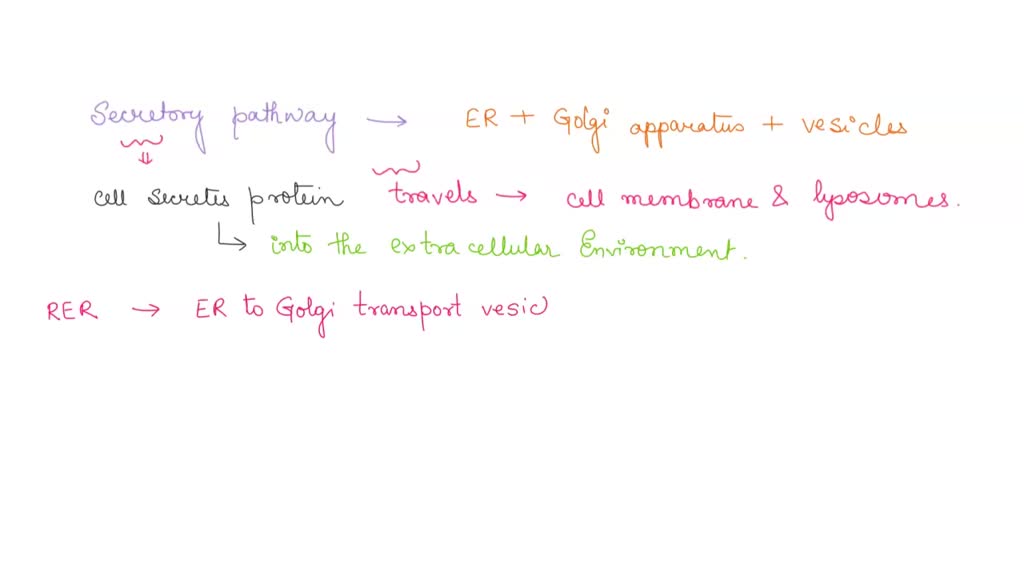 Secretory pathway → ER + Golgi apparatus + vesicles
cell secretes protein travels → cell membrane & lysosomes.
↳ into the extracellular Environment.
RER → ER to Golgi transport vesic